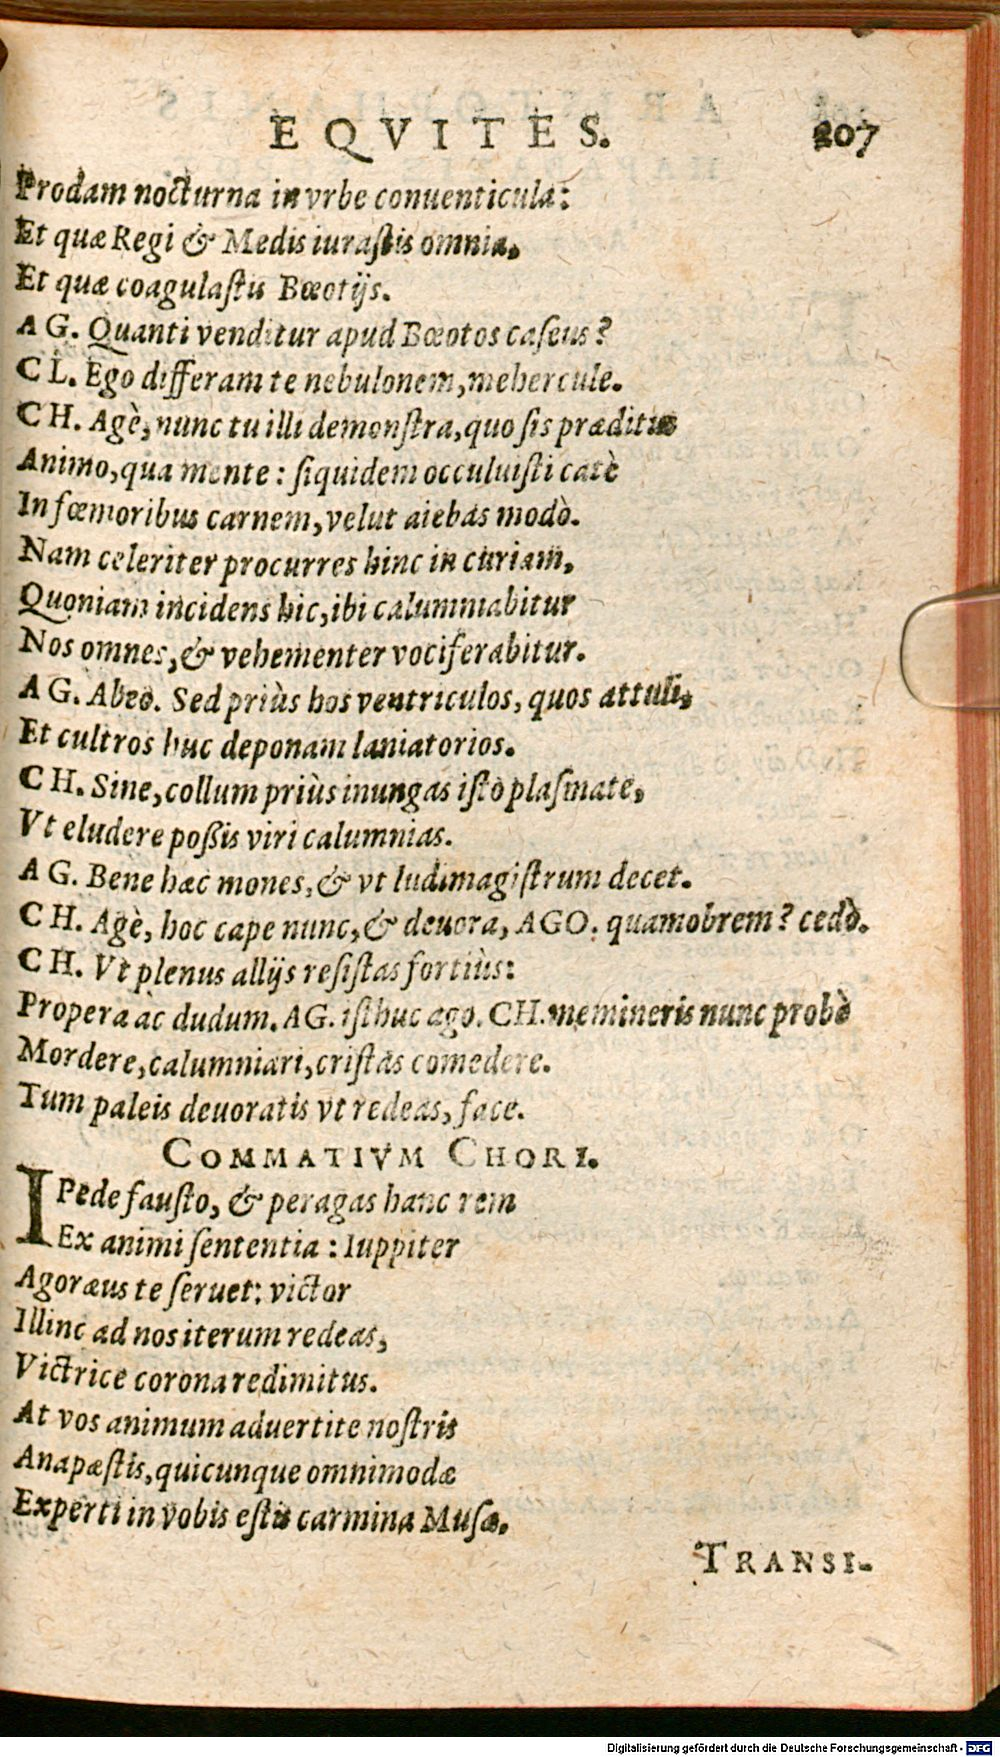 EQVITES. 207
Prodam nocturna in vrbe conuenticula:
Et quæ Regi & Medis iurastis omnia,
Et quæ coagulastis Bœotijs.
AG. Quanti venditur apud Bœotos caseus?
CL. Ego differam te nebulonem, mehercule.
CH. Agè, nunc tu illi demonstra, quo sis præditus
Animo, qua mente: siquidem occuluisti catè
In fœmoribus carnem, velut aiebas modò.
Nam celeriter procurres hinc in curiam,
Quoniam incidens hic, ibi calumniabitur
Nos omnes, & vehementer vociferabitur.
AG. Abeo. Sed priùs hos ventriculos, quos attuli,
Et cultros huc deponam laniatorios.
CH. Sine, collum priùs inungas isto plasmate,
Vt eludere poßis viri calumnias.
AG. Bene hæc mones, & vt ludimagistrum decet.
CH. Agè, hoc cape nunc, & deuora, AGO. quamobrem? cedò.
CH. Vt plenus allijs resistas fortiùs:
Propera àc dudum. AG. isthuc ago. CH. memineris nunc probè
Mordere, calumniari, cristas comedere.
Tum paleis deuoratis vt redeas, face.
COMMATIVM CHORI.
I Pede fausto, & peragas hanc rem
Ex animi sententia: Iuppiter
Agoræus te seruet: victor
Illinc ad nos iterum redeas,
Victrice corona redimitus.
At vos animum aduertite nostris
Anapæstis, quicunque omnimodæ
Experti in vobis estis carmina Musæ.
TRANSI-
Digitalisierung gefördert durch die Deutsche Forschungsgemeinschaft - DFG